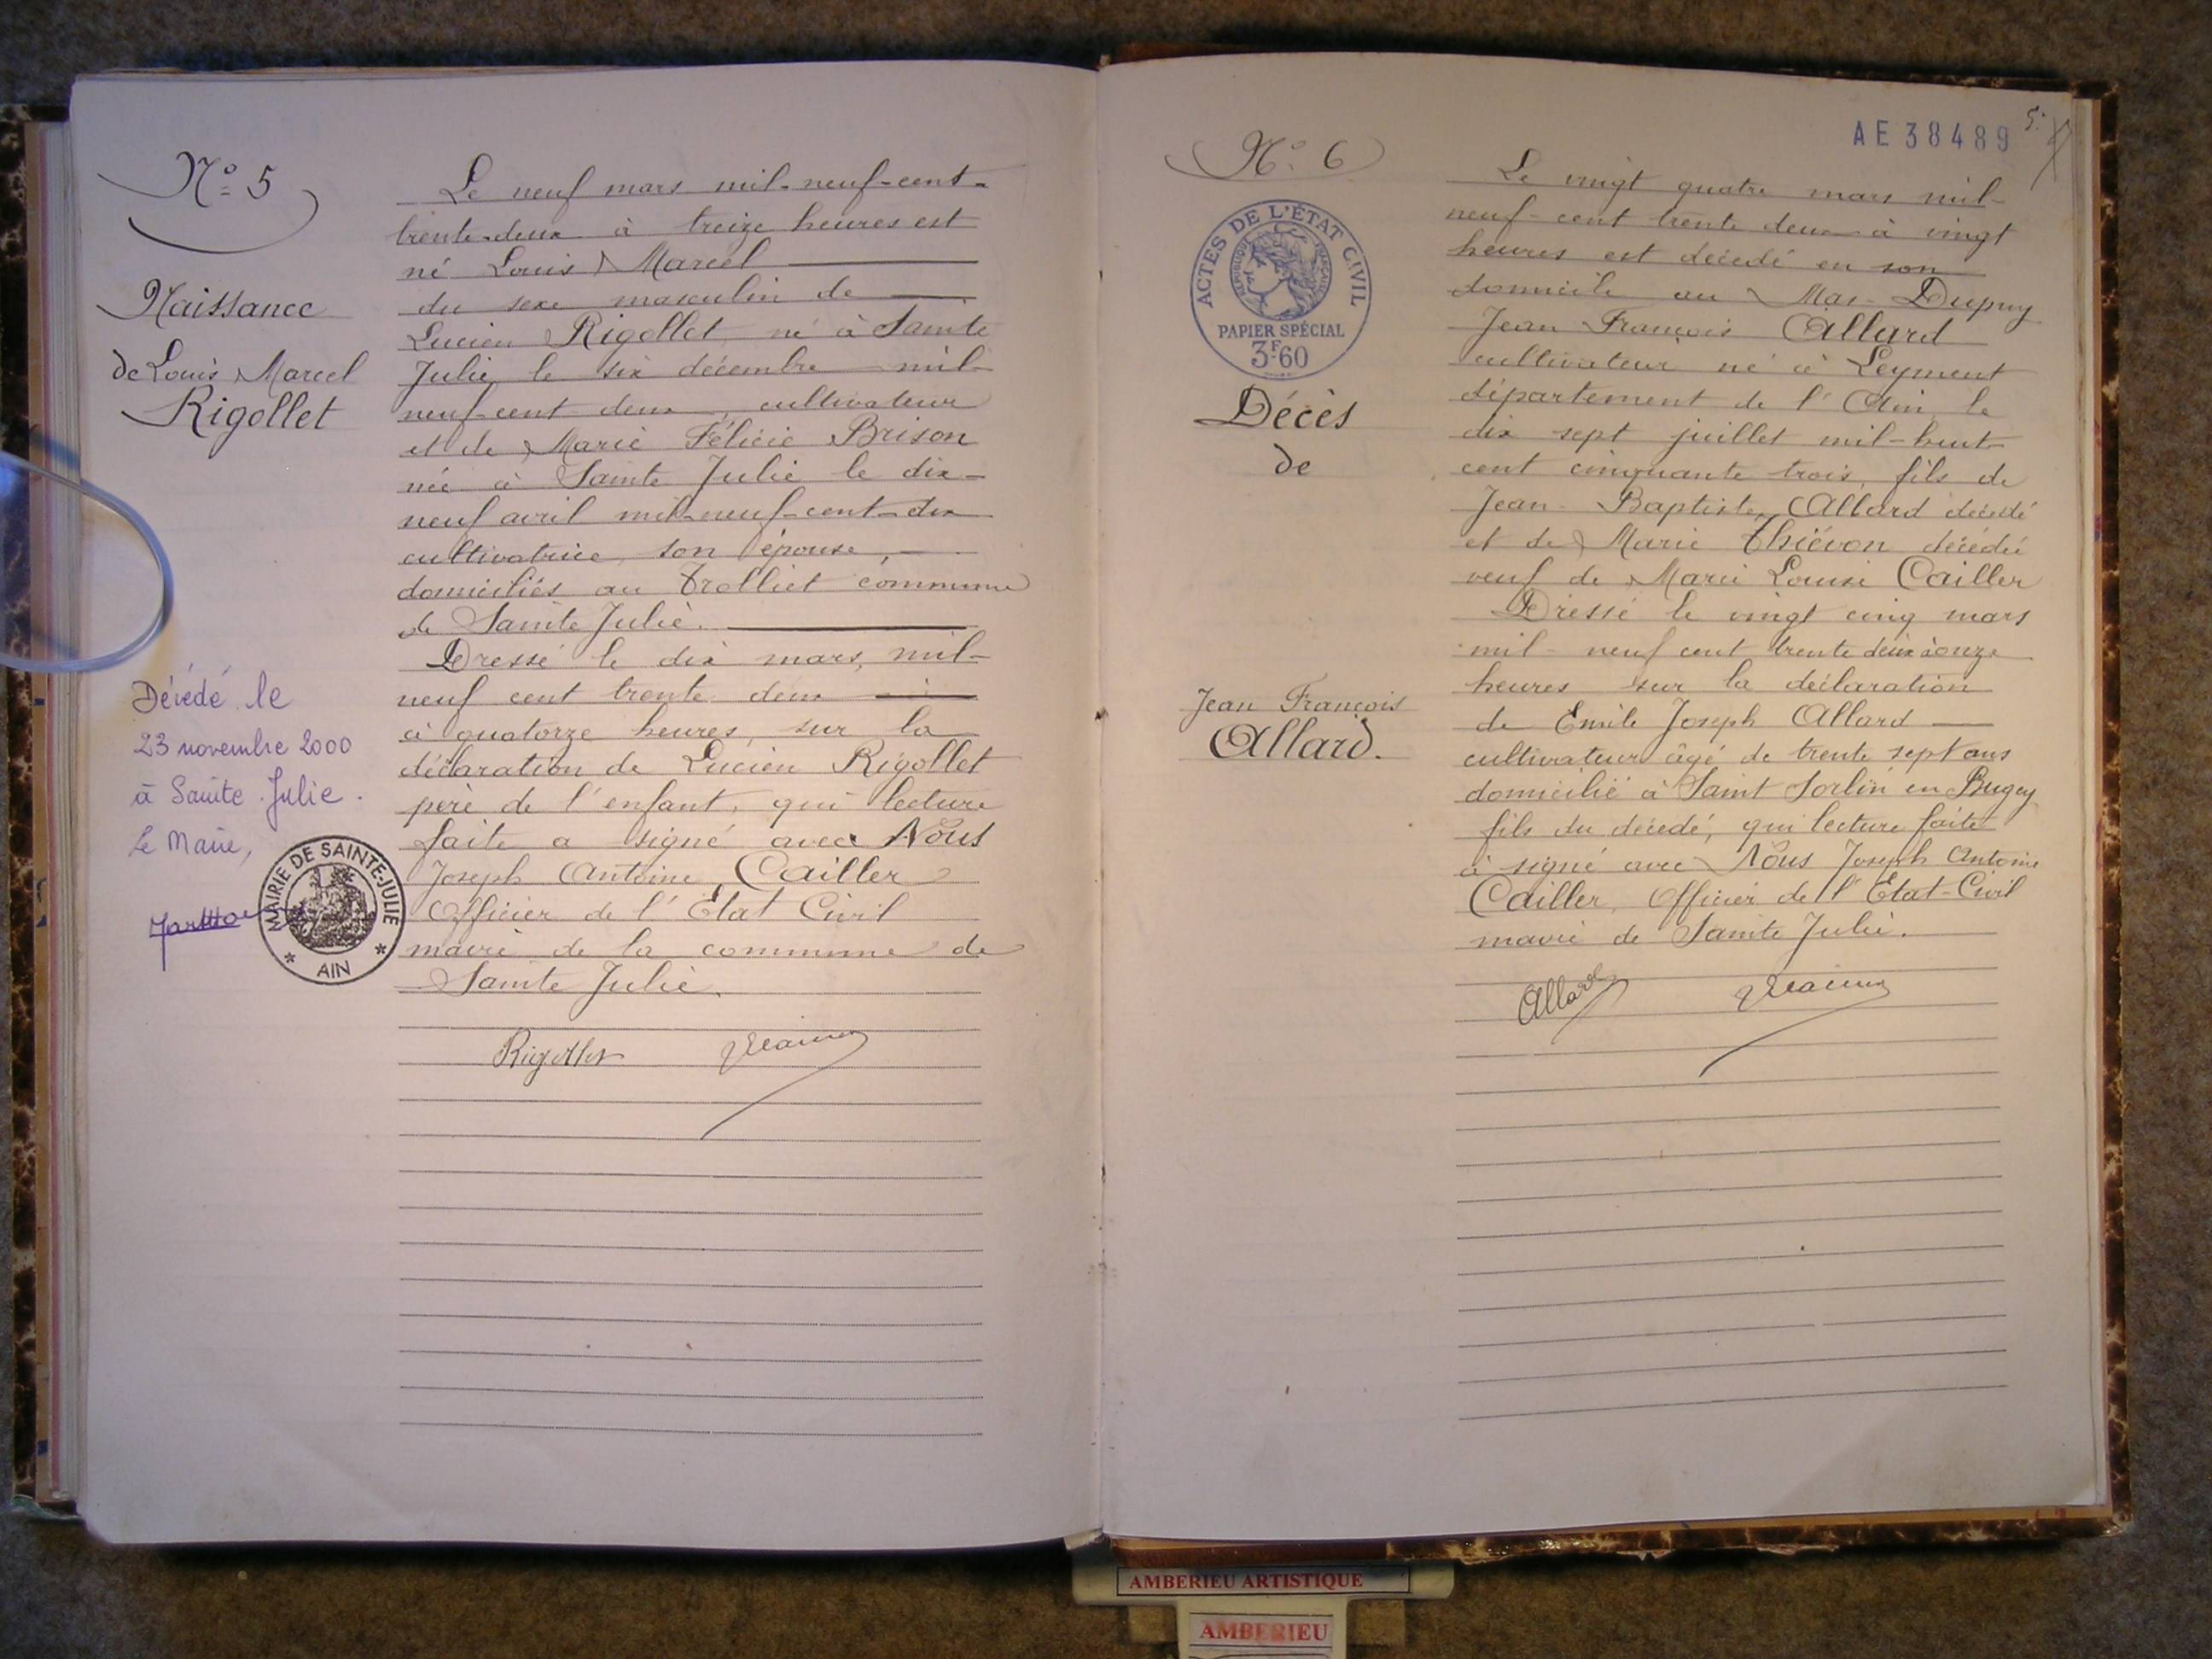 N° 5
Naissance
de Louis Marcel
Rigollet
Décédé le
23 novembre 2000
à Sainte Julie.
Le Maire,
MAIRIE DE SAINTE-JULIE
* AIN *
Le neuf mars mil-neuf-cent-
trente-deux à treize heures est
né Louis Marcel
du sexe masculin de
Lucien Rigollet né à Sainte
Julie le six décembre mil-
neuf-cent-deux, cultivateur
et de Marie Félicie Brison
née à Sainte Julie le dix-
neuf avril mil-neuf-cent-dix
cultivatrice, son épouse,
domiciliés au Trolliet commune
de Sainte Julie.
Dressé le dix mars, mil-
neuf cent trente deux
à quatorze heures, sur la
déclaration de Lucien Rigollet
père de l'enfant, qui lecture
faite a signé avec Nous
Joseph Antoine Cailler
Officier de l'Etat Civil
maire de la commune de
Sainte Julie.
Rigollet
AE 38489
5.
N° 6
ACTES DE L'ÉTAT CIVIL
RÉPUBLIQUE FRANÇAISE
PAPIER SPÉCIAL
3F60
Décès
de
Jean François
Allard.
Le vingt quatre mars mil-
neuf-cent trente deux à vingt
heures est décédé en son
domicile au Mas-Dupuy
Jean François Allard
cultivateur né à Leyment
département de l'Ain, le
dix sept juillet mil-huit
cent cinquante trois, fils de
Jean-Baptiste Allard décédé
et de Marie Thiévon décédée
veuf de Marie Louise Cailler
Dressé le vingt cinq mars
mil-neuf cent trente deux à onze
heures sur la déclaration
de Emile Joseph Allard
cultivateur âgé de trente sept ans
domicilié à Saint Sorlin en Bugey
fils du décédé, qui lecture faite
à signé avec Nous Joseph Antoine
Cailler, Officier de l'Etat-Civil
maire de Sainte Julie.
Allard
AMBERIEU ARTISTIQUE
AMBERIEU